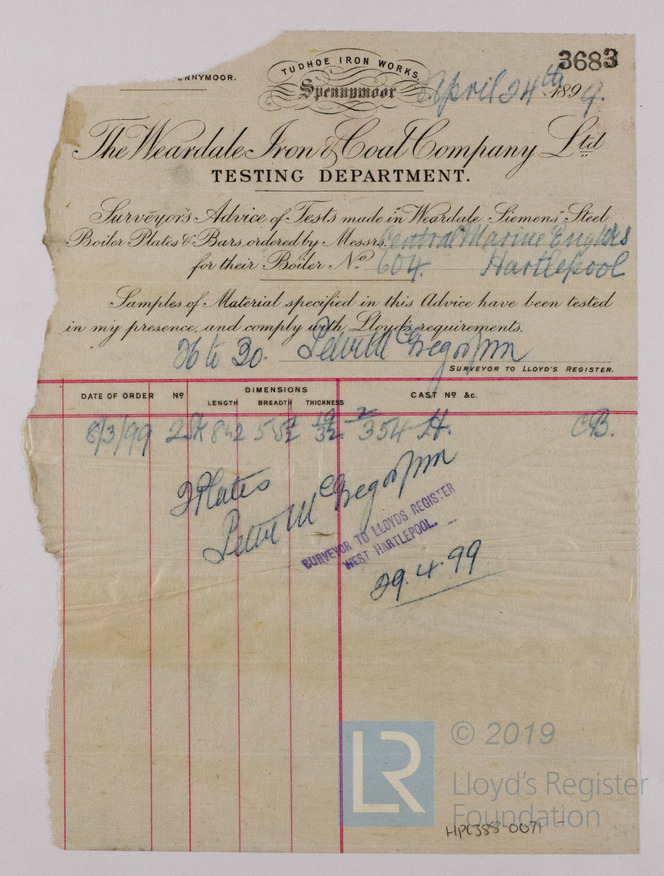 ENNYMOOR.
TUDHOE IRON WORKS,
Spennymoor
3683
April 24th 1899.
The Weardale Iron & Coal Company Ltd
TESTING DEPARTMENT.
Surveyor's Advice of Tests made in Weardale Siemens' Steel
Boiler Plates & Bars ordered by Messrs. Central Marine Eng Wks
for their Boiler No. 604. Hartlepool
Samples of Material specified in this Advice have been tested
in my presence, and comply with Lloyd's requirements.
26 to 30.
SURVEYOR TO LLOYD'S REGISTER.
DATE OF ORDER No DIMENSIONS CAST No &c.
LENGTH BREADTH THICKNESS
8/3/99 354 H. CB.
2 Plates
SURVEYOR TO LLOYDS REGISTER
WEST HARTLEPOOL.
29.4.99
LR
© 2019
Lloyd's Register
Foundation
HPL388-0071